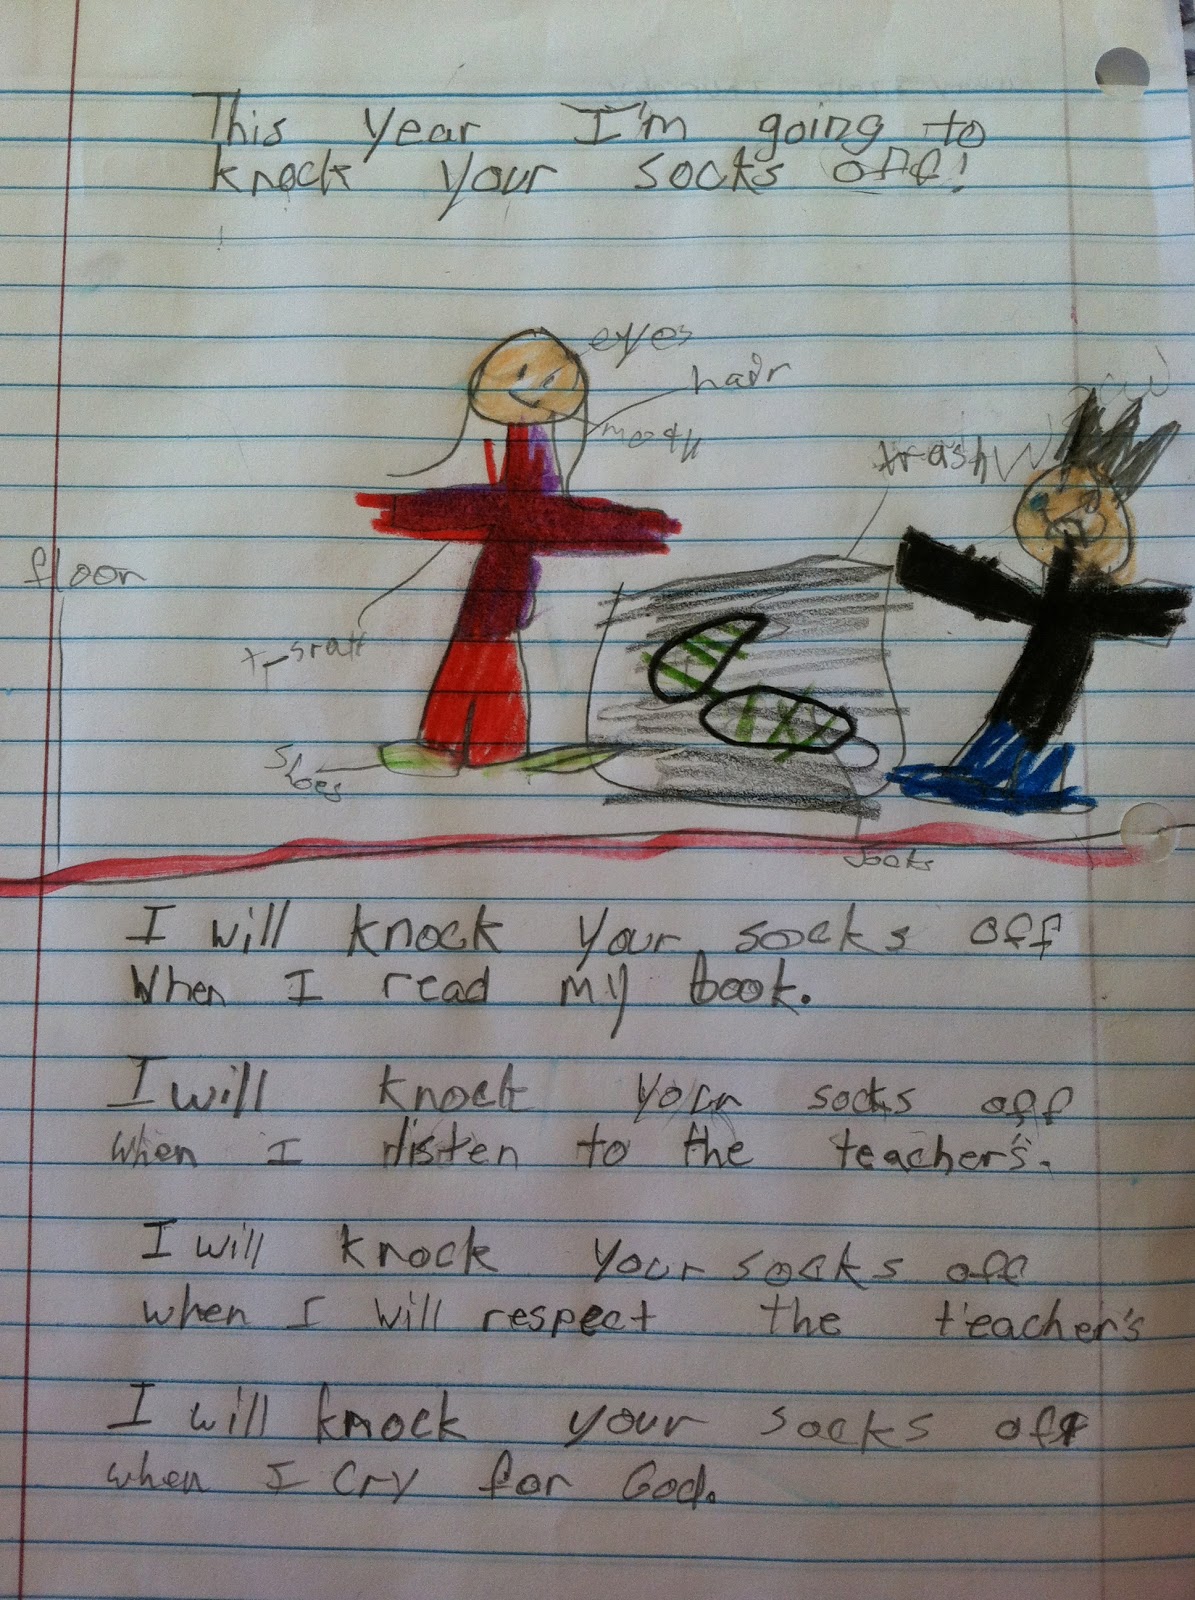 This year I'm going to
knock your socks off!
eyes
hair
mouth
trash
floor
t-sratt
shoes
socks
I will knock your socks off
When I read my book.
I will knock your socks off
when I listen to the teacher's.
I will knock your socks off
when I will respect the teacher's
I will knock your socks off
when I cry for God.